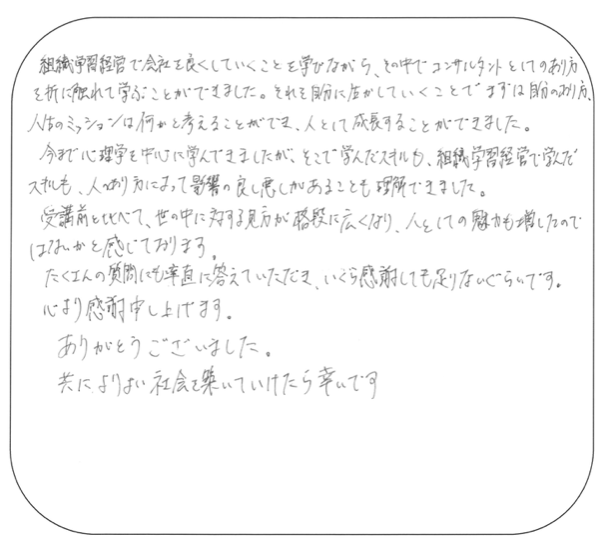 組織学習経営で会社を良くしていくことを学びながら、その中でコンサルタントとしてのあり方
を折に触れて学ぶことができました。それを自分に生かしていくことでまずは自分のあり方、
人生のミッションは何かと考えることができ、人として成長することができました。
今まで心理学を中心に学んできましたが、そこで学んだスキルも、組織学習経営で学んだ
スキルも、人のあり方によって影響の良し悪しがあることも理解できました。
受講前と比べて、世の中に対する見方が格段に広くなり、人としての魅力も増したので
はないかと感じております。
たくさんの質問にも率直に答えていただき、いくら感謝しても足りないぐらいです。
心より感謝申し上げます。
ありがとうございました。
共に、よりよい社会を築いていけたら幸いです